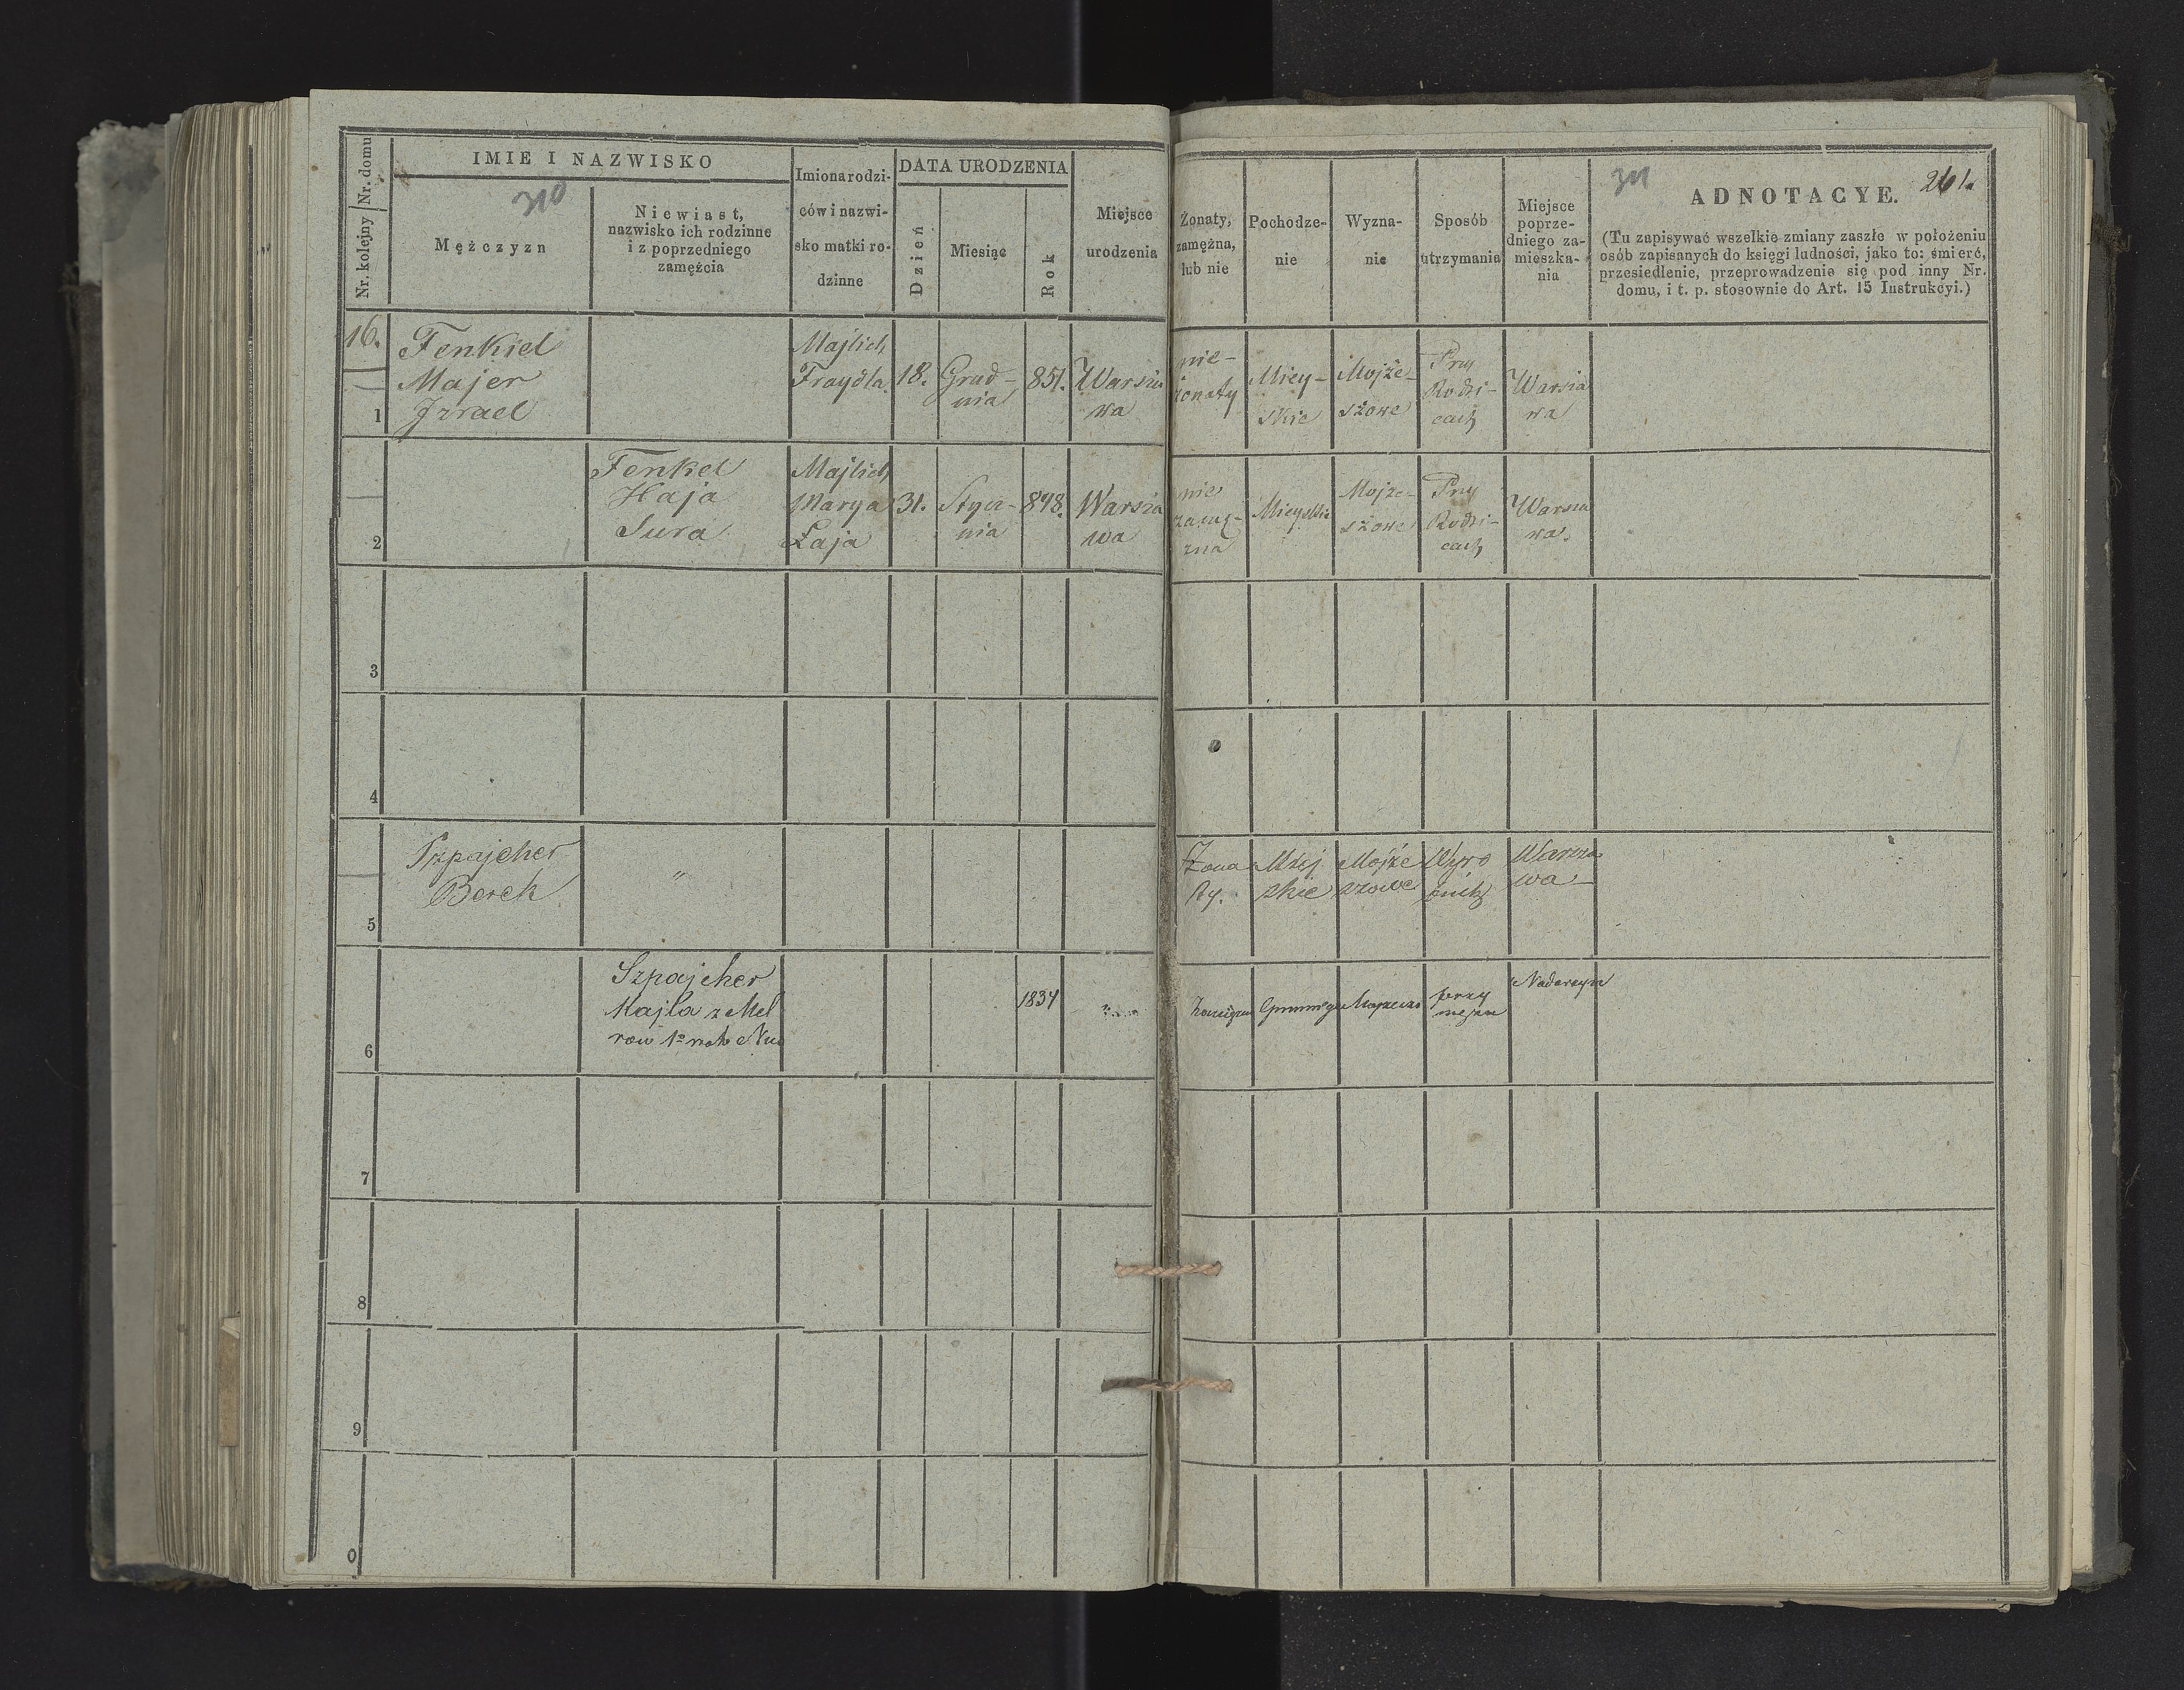 Nr. kolejny | Nr. domu
IMIE I NAZWISKO
310
Mężczyzn
Niewiast,
nazwisko ich rodzinne
i z poprzedniego
zamężcia
Imiona rodzi-
ców i nazwi-
sko matki ro-
dzinne
DATA URODZENIA
Dzień
Miesiąc
Rok
Miejsce
urodzenia
Żonaty,
zamężna,
lub nie
Pochodze-
nie
Wyzna-
nie
Sposób
utrzymania
Miejsce
poprze-
dniego za-
mieszka-
nia
311
ADNOTACYE.
261.
(Tu zapisywać wszelkie zmiany zaszłe w położeniu
osób zapisanych do księgi ludności, jako to: śmierć,
przesiedlenie, przeprowadzenie się pod inny Nr.
domu, i t. p. stosownie do Art. 15 Instrukcyi.)
16.
1
Fenkiel
Majer
Izrael
Majlich
Fraydla
18.
Grud-
nia
851.
Warsza
wa
nie-
żonaty
Miey-
skie
Mojże-
szowe
Przy
Rodzi-
cach
Warsza
wa
2
Fenkel
Haja
Sura
Majlich
Marya
Łaja
31.
Stycz-
nia
848.
Warsza
wa
nie
zamę-
zna
Mieyskie
Mojże-
szowe
Przy
Rodzi-
cach
Warsza
wa.
3
4
5
Szpajcher
Berek
"
Żona
ty.
Miej
skie
Mojże
szowe
Wyro
bnik
Warsza
wa
6
Szpajcher
Majla z Mel
row 1º
1834
Przy
mężu
Nadarzyn
7
8
9
0